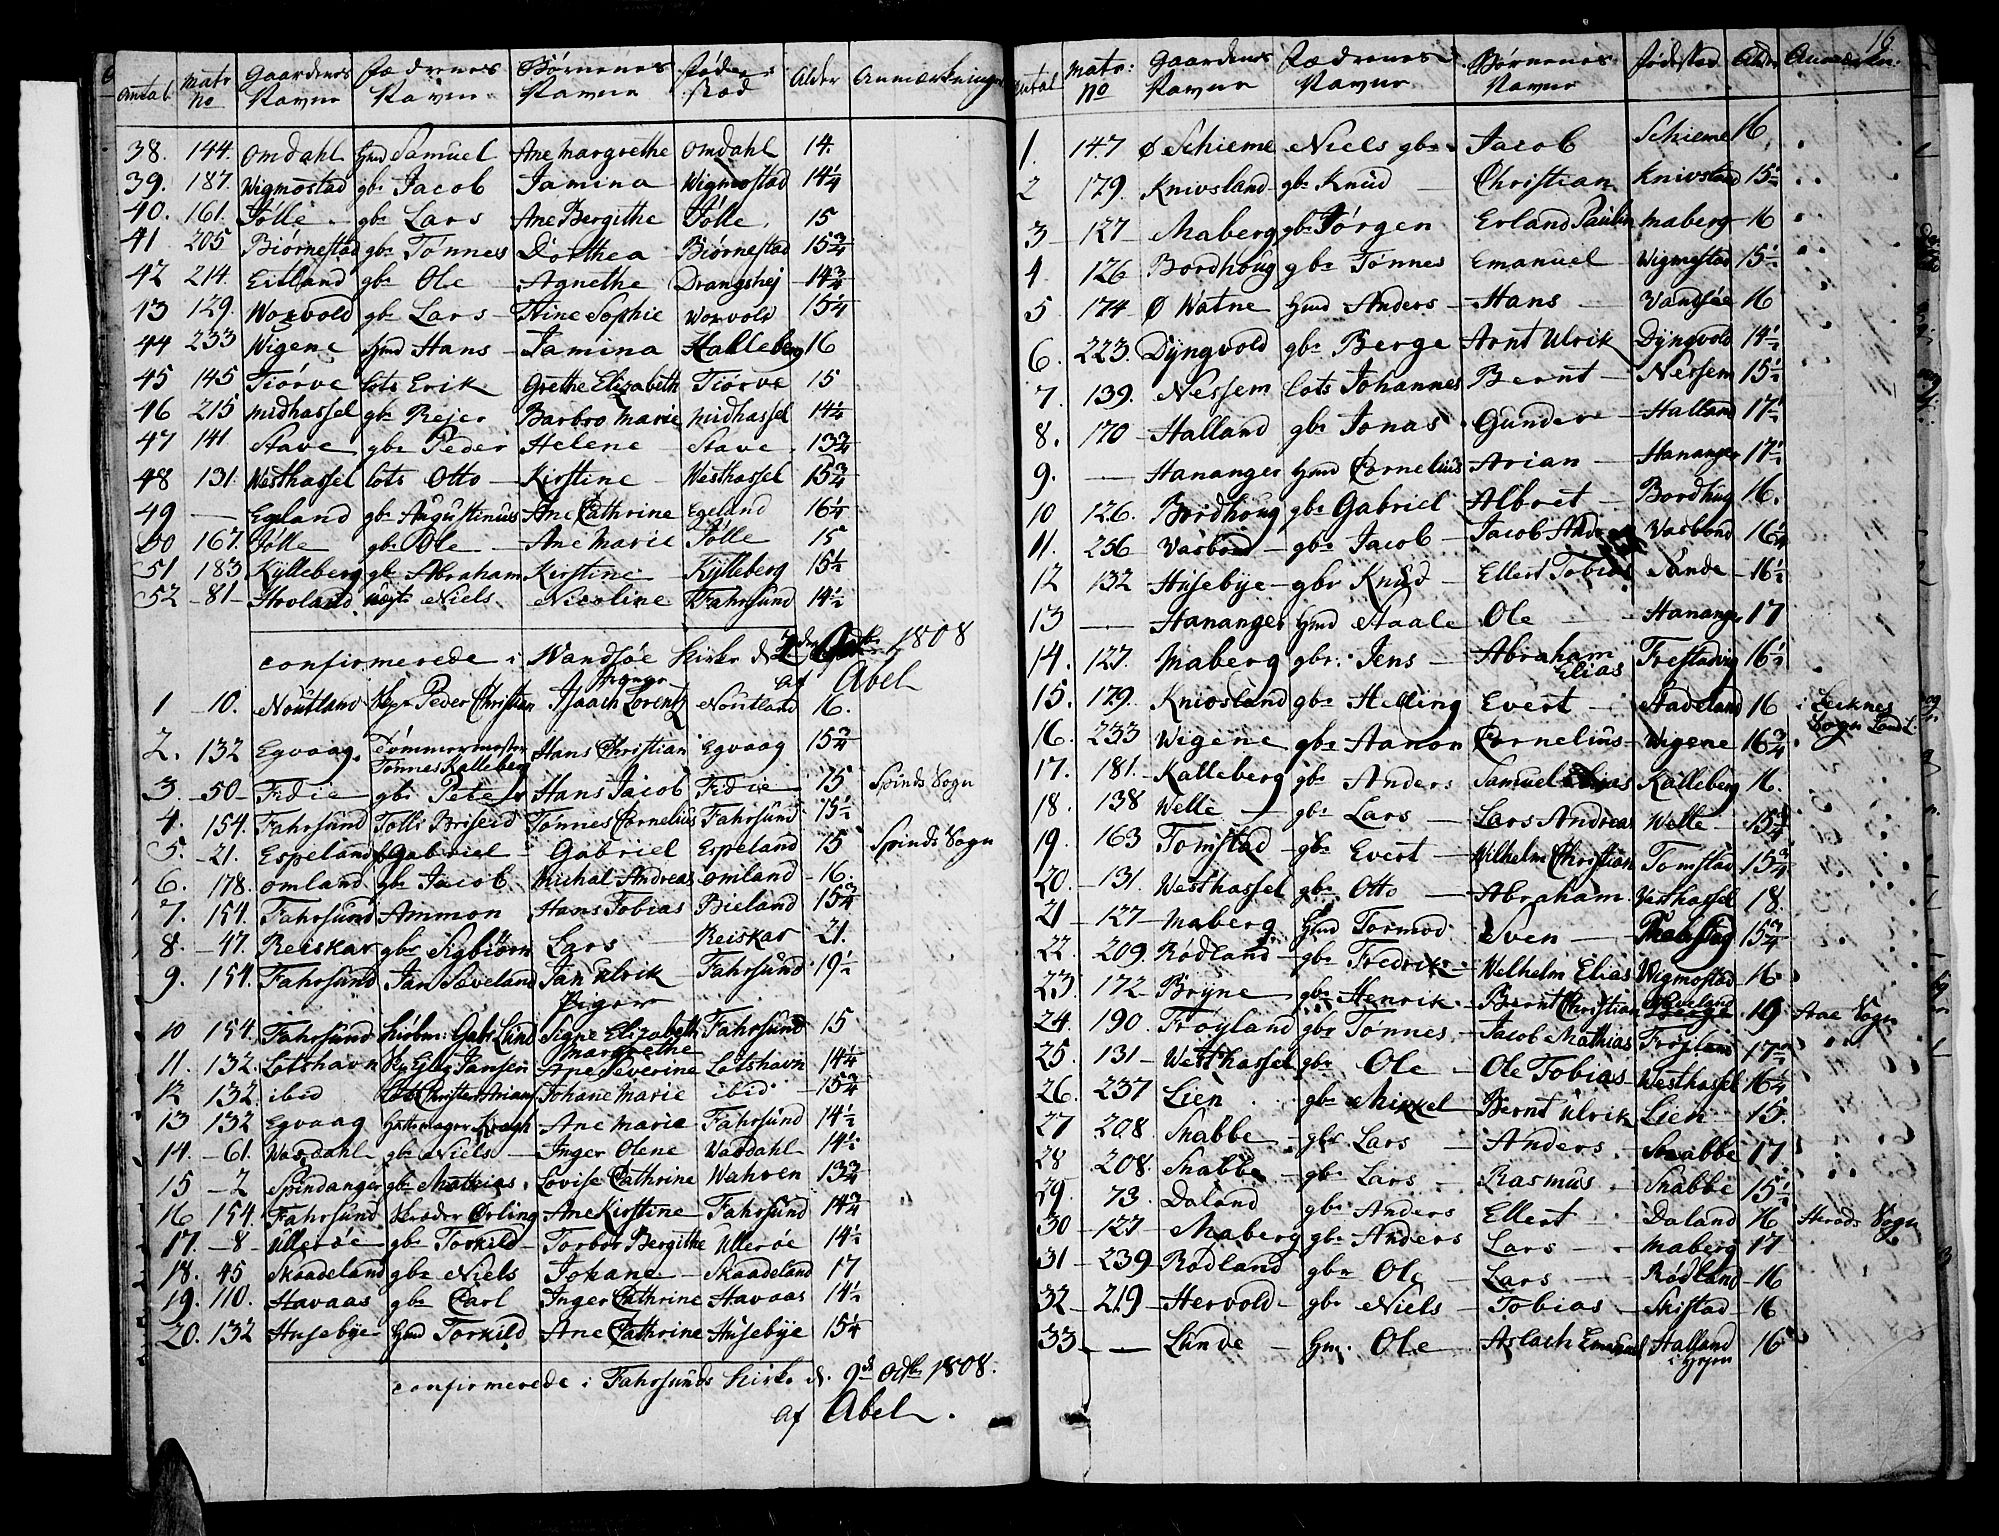 Antal Matr No Gaardenes Navne Fædrenes Navne Børnenes Navne Føde Stæd Alder Anmærkninger
38. 144. Omdahl Hmd Samuel Ane Margrethe Omdahl 14.
39. 187. Wigmostad gbr Jacob Jamina Wigmostad 14 1/4
40. 161. Jølle gbr Lars Ane Bergithe Jølle 15
41 205 Biørnestad gbr Tønnes Dorthea Biørnestad 15 3/4
42 214. Eitland gbr Ole Agnethe Drangshej 14 3/4
43 129. Worvold gbr Lars Stine Sophie Worvold 15 1/4
44 233 Wigene Hmd Hans Jamina Kalleberg 16
45 145 Tiørve Lots Erik Grethe Elizabeth Tiørve 15
46 215 Midhassel gbr Rejer Barbro Marie Midhassel 14 1/4
47 141. Stave gbr Peder Helene Stave 13 3/4
48 131. Westhassel Lots Otto Kirstine Westhassel 15 3/4
49 — Egeland gbr Augustinus Ane Cathrine Egeland 16 1/4
50 167. Jølle gbr Ole Ane Marie Jølle 15
51 183 Kylleberg gbr Abraham Kirstine Kylleberg 15 1/2
52 81 Hovland Niels Nicoline Fahrsund 14 1/2
confirmerede i Wandsøe Kirke d 2den 1808
af Abel
Drenge
1 10. Noutland Peder Christian Isaach Lorentz Noutland 16.
2. 132 Egvaag Tømmermester Tønnes Kalleberg Hans Christian Egvaag 15 3/4
3. 50 Fedie gbr Peter Hans Jacob Fedie 15 Spinds Sogn
4. 154. Fahrsund Tolli Briseid Tønnes Cornelius Fahrsund 15 1/2
5. 21. Espeland Gabriel Gabriel Espeland 15 Spinds Sogn
6. 178. Omland gbr Jacob Michal Andreas Omland 16.
7. 154. Fahrsund Ammon Hans Tobias Bieland 15 3/4
8. 47. Reiskar gbr Sigbiørn Lars Reiskar 21.
9. 154. Fahrsund Jan Sæveland Jan Ulrik Fahrsund 19 1/2
Piger
10 154. Fahrsund Gabr Lund Signe Elizabeth Margrethe Fahrsund 15
11. 132. Lotshavn Jansen Ane Severine Lotshavn 14 1/4
12 132. ibid Christen Ariansen Johane Marie ibid 15 3/4
13 132 Egvaag Hattemager Krogh Ane Marie Fahrsund 14 1/2
14. 61. Wasdahl gbr Niels Inger Olene Wasdahl 14 1/2
15 2 Spindanger gbr Mathias Lovise Cathrine Wahren 13 3/4
16 154. Fahrsund Ørling Ane Kirstine Fahrsund 14 3/4
17. 8 Ullerøe gbr Torkild Torbor Bergithe Ullerøe 14 1/2
18. 45 Skaadeland gbr Niels Johane Skaadeland 17
19. 110. Havaas gbr Carl Inger Cathrine Havaas 14 1/2
20. 132 Husebye Hmd Torkild Ane Cathrine Husebye 15 1/4
confirmerede i Fahrsunds Kirke d. 9d Octbr 1808.
af Abel.
16
Antal Matr: No Gaardenes Navne Fædrenes Navne Børnenes Navne Fødestæd Alder Anmærkn:
1. 147. Ø Schieme Niels gbr Jacob Schieme 16
2 179. Knivsland gbr Knud Christian Knivsland 15 1/2
3 127 Maberg gbr Jørgen Erland Paulin Maberg 16
4 126 Bordhoug gbr Tønnes Emanuel Wigmostad 15 1/2
5 174 Ø Watne Hmd Anders Hans Vandsøe 16
6. 223. Dyngvold gbr Berge Arnt Ulrik Dyngvold 14 1/2
7. 139. Nessem Lots Johannes Bernt Nessem 15 1/2
8. 170 Halland gbr Jonas Gunder Halland 17 1/2
9. — Hananger Hmd Cornelius Arian Hananger 17 1/2
10 126. Bordhoug gbr Gabriel Albret Bordhug 16.
11. 256 Vasbond gbr Jacob Jacob Andr Vasbond 16 1/4
12 132 Husebye gbr Knud Ellert Tobias Sande 16 1/2
13 — Hananger Hmd Staale Ole Hananger 17
14. 127. Maberg gbr. Jens Abraham Elias Frestadvig 16 1/2
15. 179. Knivsland gbr Helling Evert Stadeland 16 i Leknes Sogn
16. 233 Wigene gbr Aanon Cornelius Wigene 16 3/4
17. 181. Kalleberg gbr Anders Samuel Elias Kalleberg 16.
18. 138 Welle gbr Lars Lars Andreas Welle 15 3/4
19. 163 Tomstad gbr Evert Wilhelm Christian Tomstad 15 3/4
20. 131. Westhassel gbr Otto Abraham Vesthassel 18
21 127 Maberg Hmd Tormod Sven 15 3/4
22 209. Rødland gbr Fredrik Welhelm Elias Wigmostad 16
23. 172 Bryne gbr Henrik Bernt Christian 19 Aae Sogn
24. 190 Frøyland gbr Tønnes Jacob Mathias Frøyland 17 1/2
25. 131 Westhassel gbr Ole Ole Tobias Westhassel 16 1/4
26. 237 Lien gbr Mikkel Bernt Ulrik Lien 15.
27 208. Snabbe gbr Lars Anders Snabbe 17
28 208. Snabbe gbr Lars Rasmus Snabbe 15 1/2
29. 73. Daland gbr Anders Ellert Daland 16 Herads Sogn
30 127 Maberg gbr Anders Lars Maberg 17
31 239 Rødland gbr Ole Lars Rødland 16
32 219 Hervold gbr Niels Tobias Skistad 16
33 — Lunde Hm. Ole Aslach Emanuel Halland 16